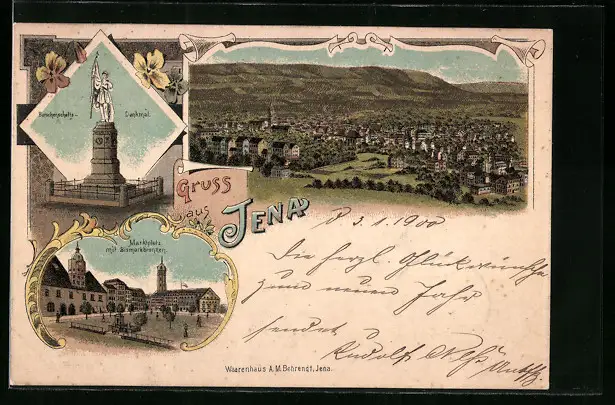 Burschenschafts-
Denkmal.
Gruss
aus
JENA
Marktplatz
mit Bismarckbrunnen.
3.1.1900
Die herzl. Glückwünsche
zum neuen Jahr
sendet
Rudolf
Waarenhaus A.M. Behrendt, Jena.